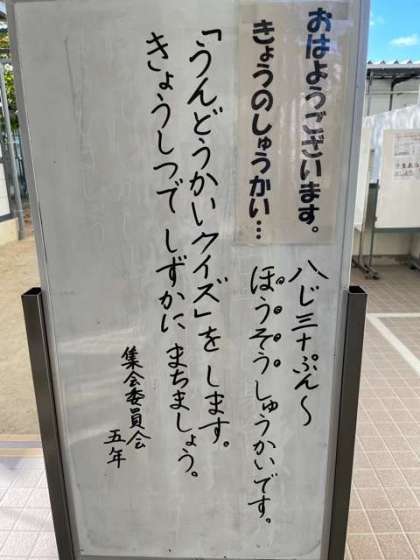 おはようございます。
きょうのしゅうかい…
八じ三十ぷん～
ほうそうしゅうかいです。
「うんどうかいクイズ」をします。
きょうしつでしずかにまちましょう。
集会委員会
五年